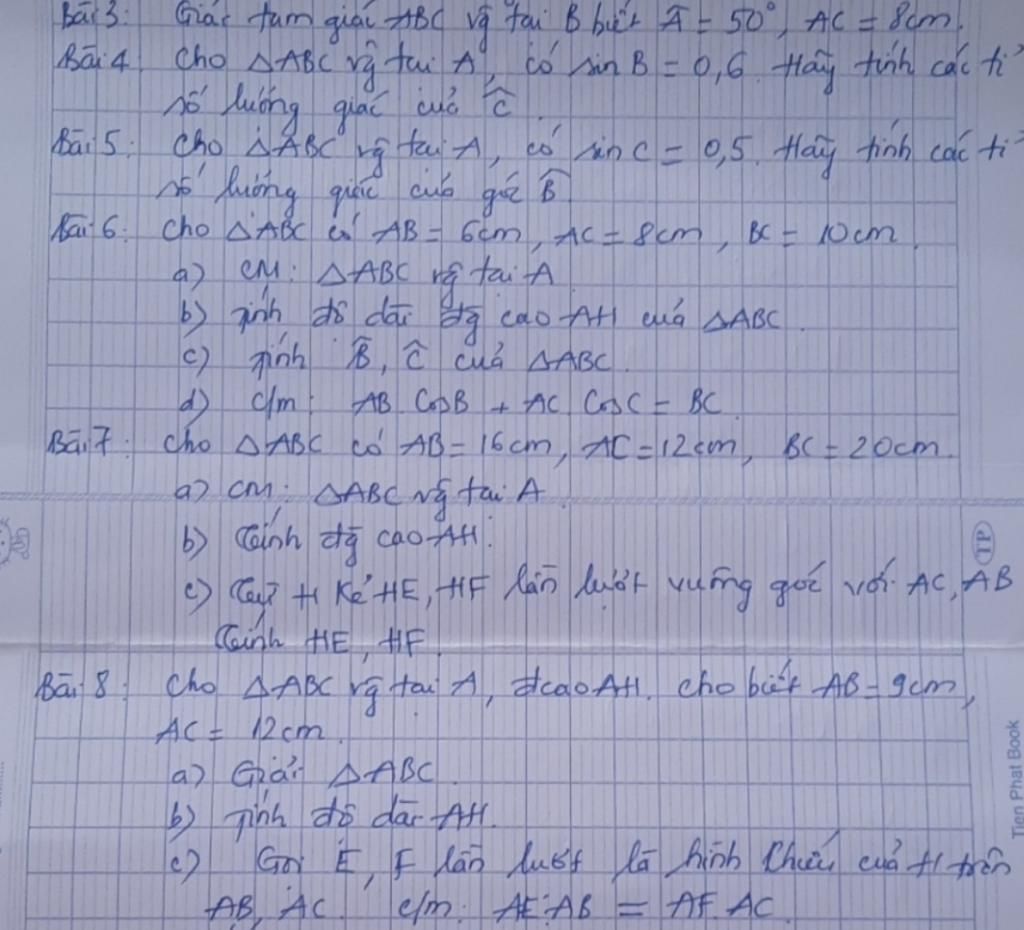 Bài 3: Giải tam giác ABC vg̃ tại B biết Â = 50°, AC = 8cm.
Bài 4: Cho △ABC vg̃ tại A, có sin B = 0,6. Hãy tính các tỉ
số lượng giác của Ĉ
Bài 5: Cho △ABC vg̃ tại A, có sin C = 0,5. Hãy tính các tỉ
số lượng giác của góc B̂
Bài 6: Cho △ABC có AB = 6cm, AC = 8cm, BC = 10cm.
a) CM: △ABC vg̃ tại A
b) Tính độ dài đg̃ cao AH của △ABC.
c) Tính B̂, Ĉ của △ABC.
d) C/m: AB. CosB + AC. CosC = BC.
Bài 7: Cho △ABC có AB = 16cm, AC = 12cm, BC = 20cm.
a) CM: △ABC vg̃ tại A
b) Tính đg̃ cao AH.
c) Từ H Kẻ HE, HF lần lượt vuông góc với AC, AB
Tính HE, HF.
Bài 8: Cho △ABC vg̃ tại A, đcao AH. Cho biết AB = 9cm,
AC = 12cm.
a) Giải △ABC
b) Tính độ dài AH.
c) Gọi E, F lần lượt là hình chiếu của H trên
AB, AC. c/m: AE.AB = AF.AC.
TP
Tien Phat Book